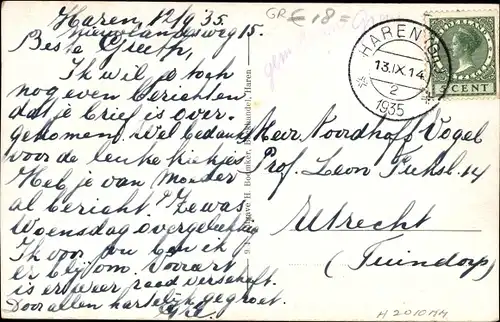 Haren 12/9 '35.
Nieuwlandsweg 15.
Beste Greetp,
Ik wil je toch
nog even berichten
dat je brief is over-
genomen. Wel bedankt
voor de leuke kiekjes
Heb je van Moeder
al bericht? Ze was
Woensdag overgelukkig
Ik voor jou ben ik
er blij om. Vooraf
is er weer raad verschaft.
Door allen hartelijk gegroet.
GR € 18 =
gem
HAREN (GR)
13.IX.14
2
1935
CENT
Uitgave H. Boomker, Boekhandel, Haren
Heer Noordhoff Vogel
Prof. Leon Fuchsl. 14
Utrecht
(Tuindorp)
A2010MM